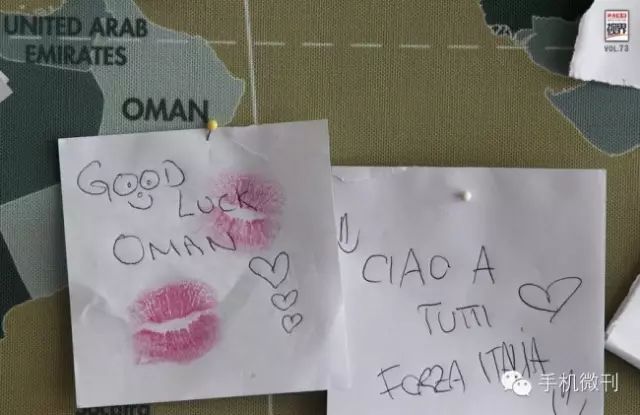 UNITED ARAB
EMIRATES
OMAN
VOL.73
GOOD
LUCK
OMAN
CIAO A
TUTTI
FORZA ITALIA
手机微刊
Socotra